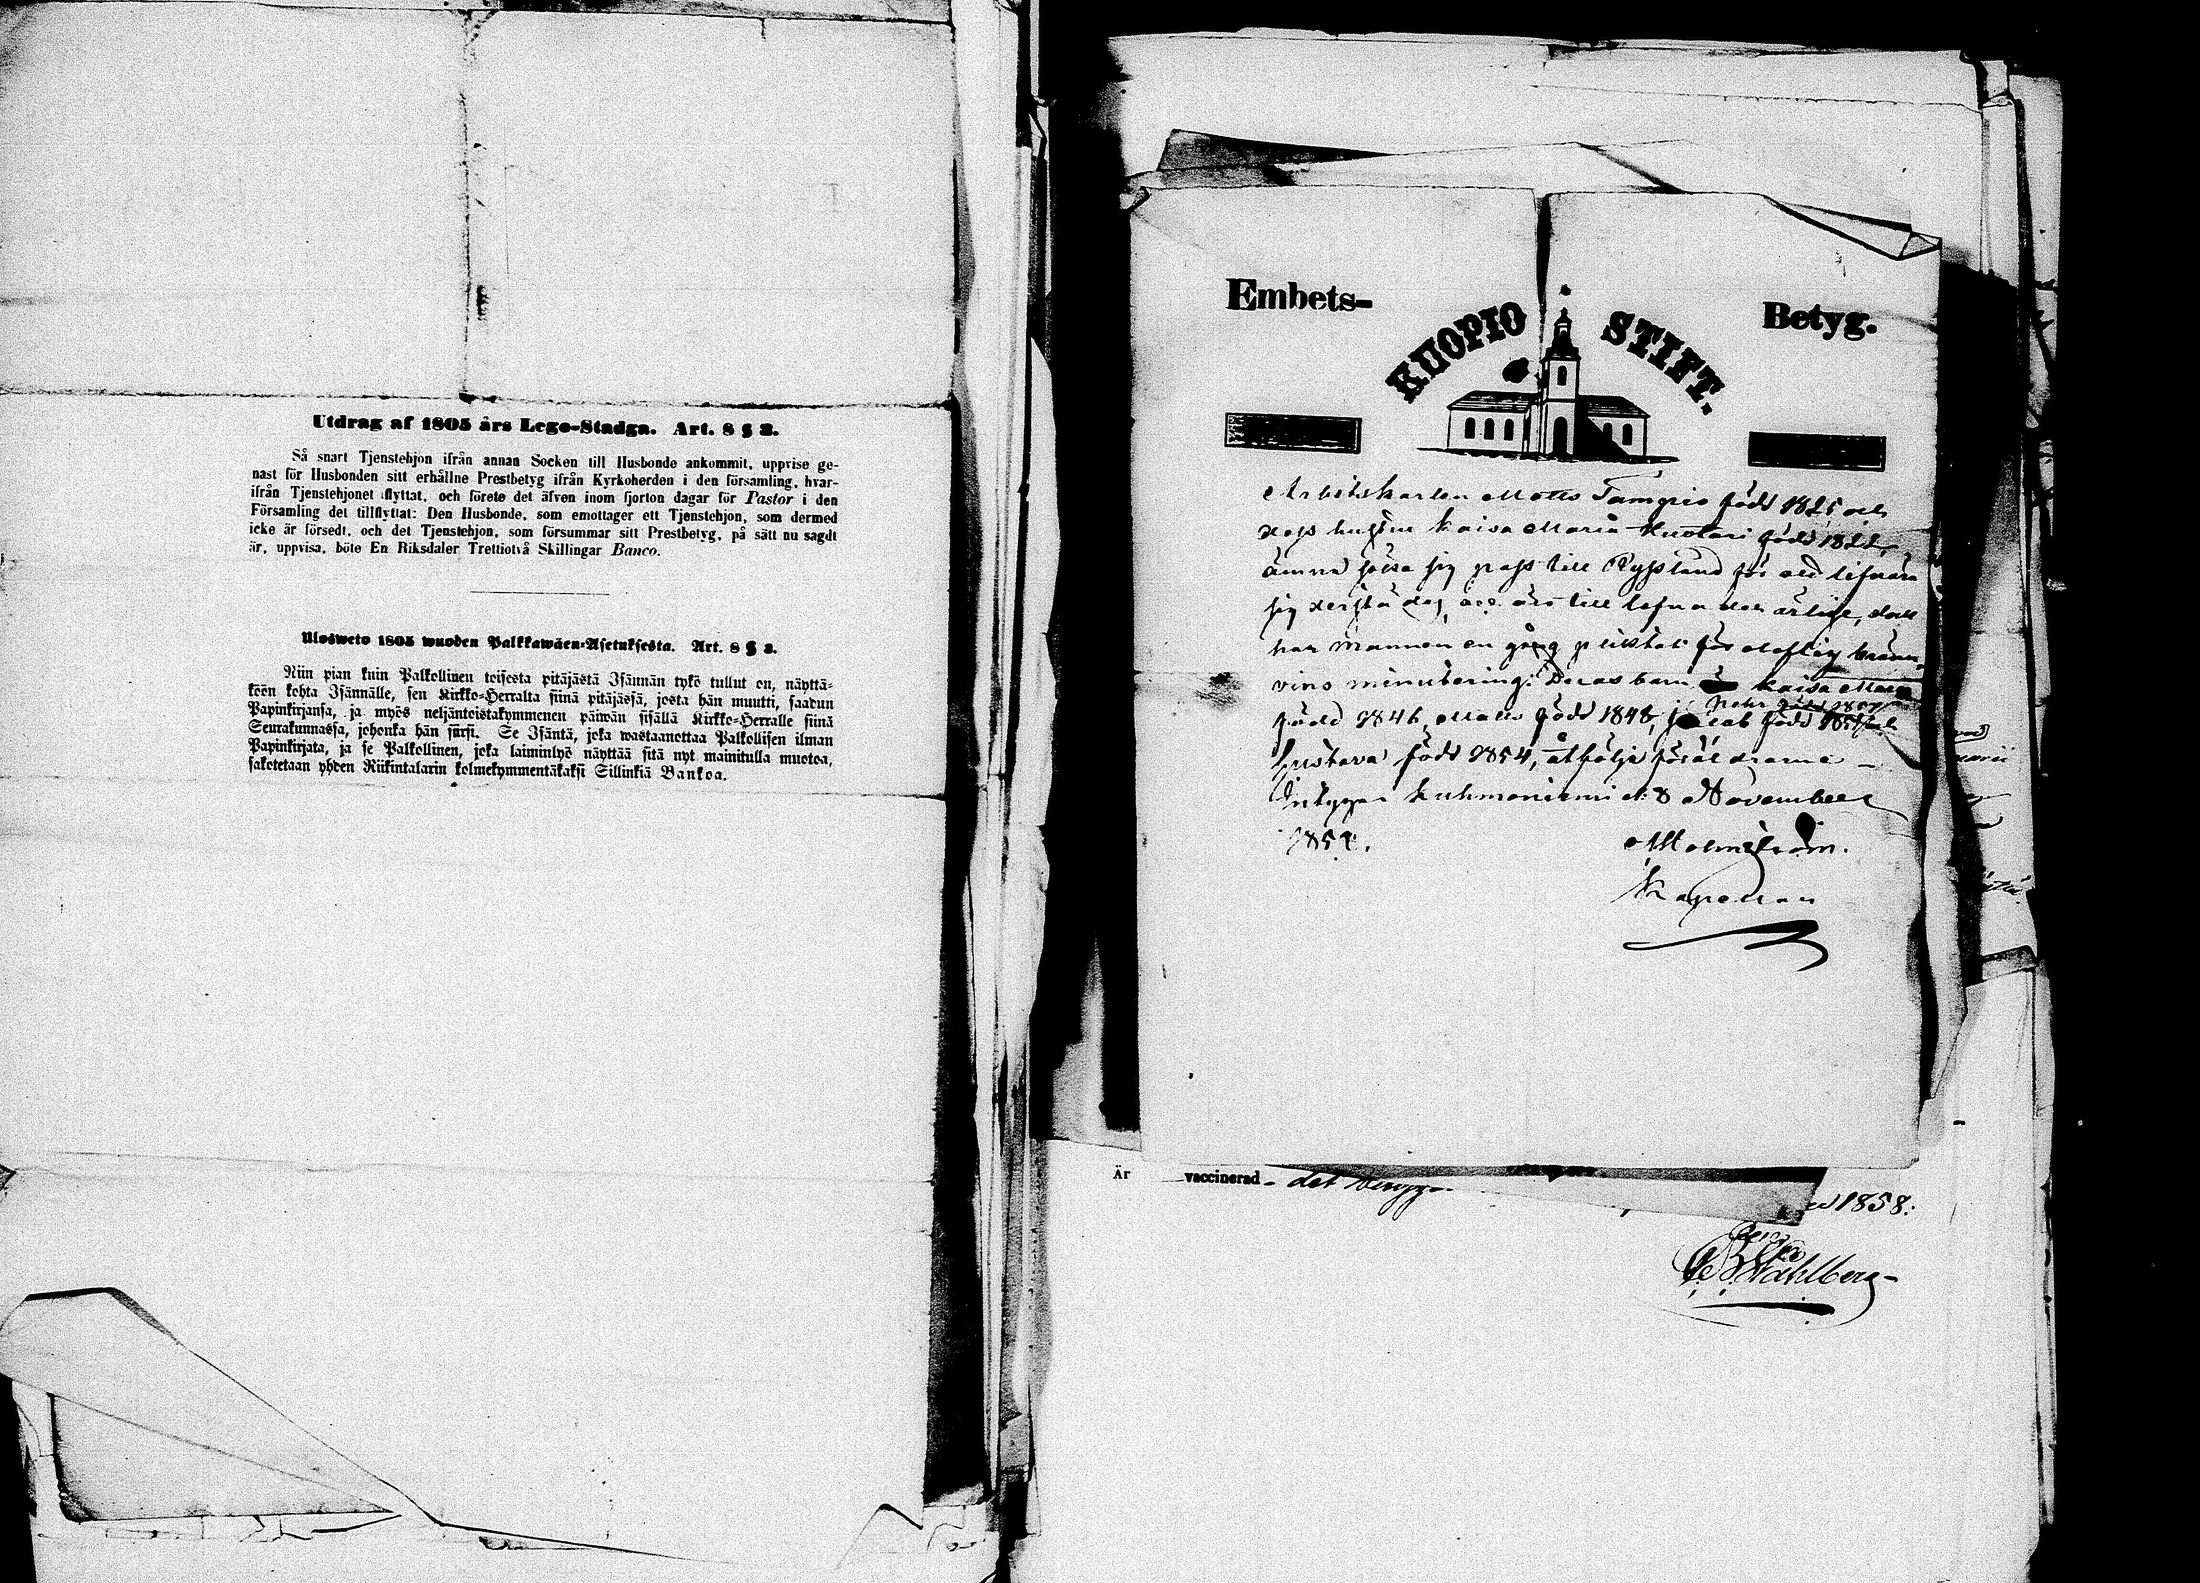 Utdrag af 1805 års Lego-Stadga. Art. 8 § 3.
Så snart Tjenstehjon ifrån annan Socken till Husbonde ankommit, uppvise ge-
nast för Husbonden sitt erhållne Prestbetyg ifrån Kyrkoherden i den församling, hvar-
ifrån Tjenstehjonet flyttat, och förete det äfven inom fjorton dagar för Pastor i den
Församling det tillflyttat: Den Husbonde, som emottager ett Tjenstehjon, som dermed
icke är försedt, och det Tjenstehjon, som försummar sitt Prestbetyg, på sätt nu sagdt
är, uppvisa, böte En Riksdaler Trettiotvå Skillingar Banco.
Ulosweto 1805 wuoden Palkkawäen-Asetuksesta. Art. 8 § 3.
Niin pian kuin Palkollinen toisesta pitäjästä Isännän tykö tullut on, näyttä-
köön kohta Isännälle, sen Kirkko-Herralta siinä pitäjässä, josta hän muutti, saadun
Papinkirjansa, ja myös neljäntoistakymmenen päiwän sisällä Kirkko-Herralle siinä
Seurakunnassa, johonka hän siirsi. Se Isäntä, joka wastaanottaa Palkollisen ilman
Papinkirjata, ja se Palkollinen, joka laiminlyö näyttää sitä nyt mainitulla muotoa,
sakotetaan yhden Riikintalarin kolmekymmentäkaksi Sillinkiä Bankoa.
Embets- Betyg.
KUOPIO STIFT.
Arbetskarlen Matts Tampio född 1825 och
dess hustru Kaisa Maria född 1822,
ämna förse sig pass till Ryssland för att lifnära
sig derstädes, till lefnaden ärlige, dock
har mannen en gång pliktat för olaflig bränn-
vins minutering. Deras barn Kaisa Maria
född 1846, Matts född 1848, Jacob född
Petr född
Gustava född 1854, åtfölja föräldrarne
Intygar Kuhmoniemi d: 8 November
185
Malmström.
Kapellan
Är vaccinerad det
1858.
Stahlberg